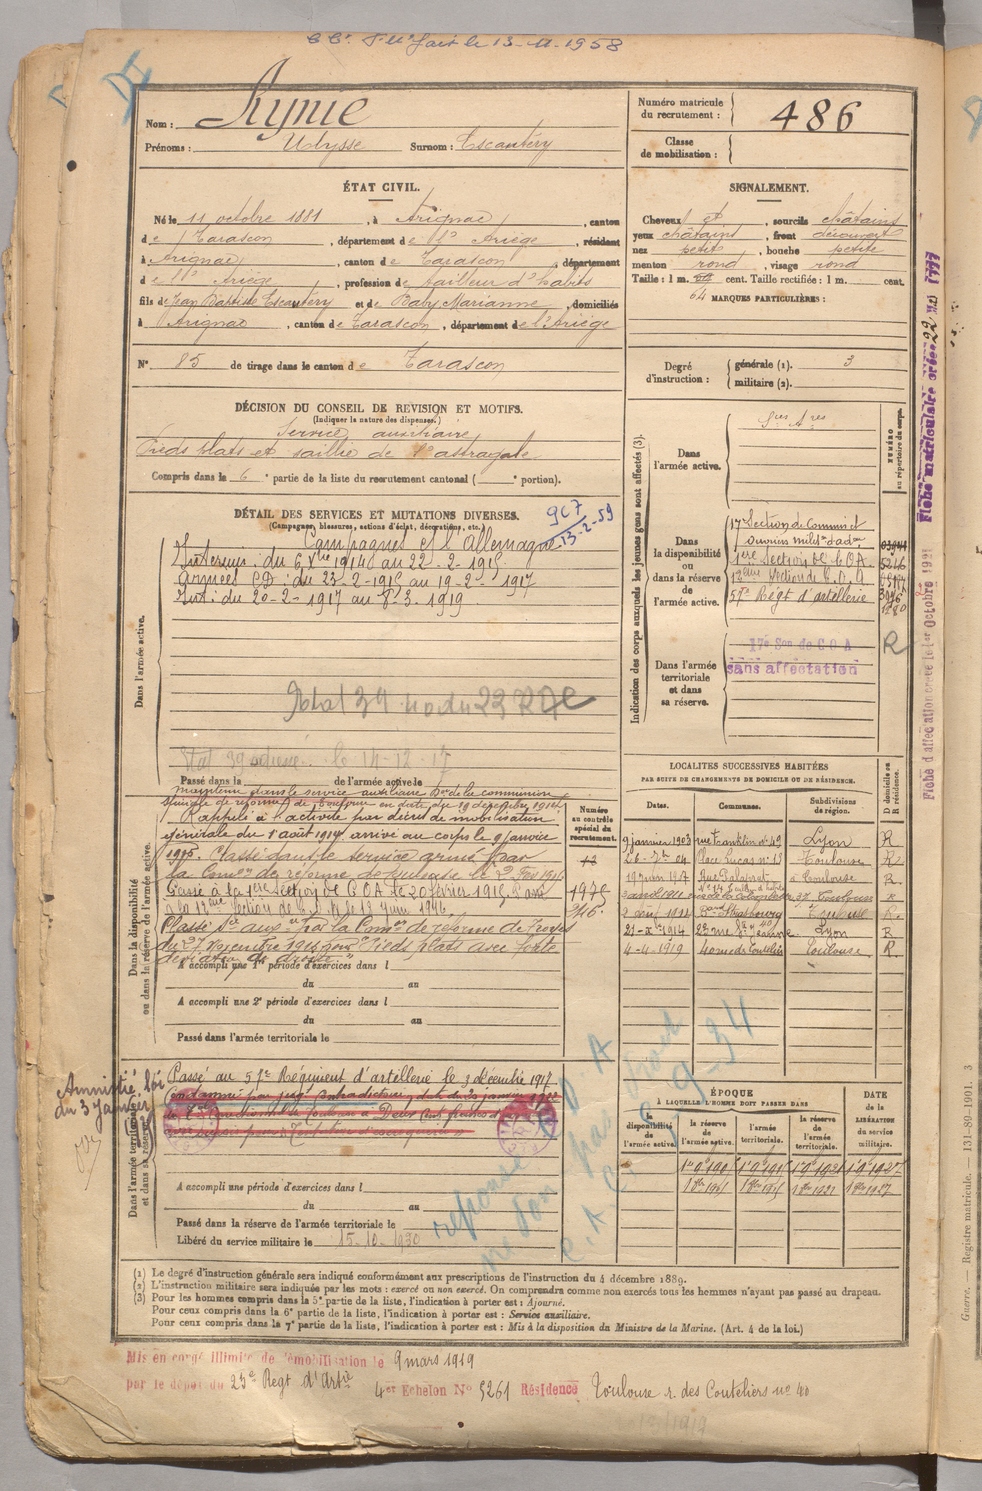 fait le 13-11-1958
Nom : Rynie
Prénoms : Ulysse Surnom : Escantéry
Numéro matricule du recrutement : 486
Classe de mobilisation :
ÉTAT CIVIL.
Né le 11 octobre 1881, à Arignac, canton
de Tarascon, département de l'Ariège, résidant
à Arignac, canton de Tarascon, département
de l'Ariège, profession de tailleur d'habits
fils de Jean Baptiste Escantéry et de Baby Marianne, domiciliés
à Arignac, canton de Tarascon, département de l'Ariège
SIGNALEMENT.
Cheveux, sourcils châtains
yeux châtains, front découvert
nez petit, bouche petite
menton rond, visage rond
Taille : 1 m. cent. Taille rectifiée : 1 m. cent.
64 MARQUES PARTICULIÈRES :
N° 85 de tirage dans le canton de Tarascon
Degré d'instruction : générale (1). 3
militaire (2).
DÉCISION DU CONSEIL DE RÉVISION ET MOTIFS.
(Indiquer la nature des dispenses.)
Service auxiliaire
Pieds plats et saillie de l'astragale
Compris dans la 6e partie de la liste du recrutement cantonal ( e portion).
DÉTAIL DES SERVICES ET MUTATIONS DIVERSES.
(Campagnes, blessures, actions d'éclat, décorations, etc.)
967
13-2-59
Campagnes c/ l'Allemagne
Intérieur : du 6 Xbre 1914 au 22-2-1915
Armées CD : du 23-2-1915 au 19-2-1917
Int. : du 20-2-1917 au 8-3-1919
Dans l'armée active.
le 14-12-17
Passé dans la de l'armée active le
Maintenu dans le service auxiliaire Don de la commission
spéciale de réforme de Toulouse en date du 19 décembre 1914
Rappelé à l'activité par décret de mobilisation
générale du 1er août 1914, arrivé au corps le 9 janvier
1915. Classé dans le service armé par
la Comon de réforme de Toulouse le 2 Fév 1915
Passé à la 1ère Section de C O A le 20 février 1915. Passé
à la 12ème Section de C.O.A le 12 Juin 1916
Classé Sce auxre par la Comon de réforme de Troyes
du 27 Novembre 1916 pour "Pieds plats avec forte
déviation du droite."
A accompli une 1re période d'exercices dans l
du au
A accompli une 2e période d'exercices dans l
du au
Passé dans l'armée territoriale le
Dans la disponibilité ou dans la réserve de l'armée active.
Numéro au contrôle spécial du recrutement.
12
1975
Indication des corps auxquels les jeunes gens sont affectés (3).
NUMÉRO au répertoire du corps.
Dans l'armée active.
Sces Ares
Dans la disponibilité ou dans la réserve de l'armée active.
17e Section de Commis et
ouvriers milit. d'adon
1ère Section de C O A. 5246
12ème Section de C.O.A
57e Régt d'artillerie
Dans l'armée territoriale et dans sa réserve.
17e Son de C O A R
sans affectation
Fiche matriculaire créée 22
Fiche d'affectation créée le 1er Octobre 1921
LOCALITÉS SUCCESSIVES HABITÉES
PAR SUITE DE CHANGEMENTS DE DOMICILE OU DE RÉSIDENCE.
Dates. Communes. Subdivisions de région. D domicile ou R résidence.
9 janvier 1903 rue Franklin n° 49 Lyon R
26-7bre 04 Place Lucas n° 13 Toulouse R
Rue Palaprat à Toulouse R.
3 avril 1911 rue de la Colombette 37 Toulouse R
Bard Strasbourg Toulouse R.
21-Xbre 1914 Lyon R
4-4-1919 40 rue des Couteliers Toulouse R
Amnistié loi
du 3 Janvier
Passé au 57e Régiment d'artillerie le 3 décembre 1917
A accompli une période d'exercices dans l
du au
Passé dans la réserve de l'armée territoriale le
Libéré du service militaire le 15-10-1930
Dans l'armée territoriale et dans sa réserve.
ÉPOQUE
À LAQUELLE L'HOMME DOIT PASSER DANS
la disponibilité de l'armée active. la réserve de l'armée active. l'armée territoriale. la réserve de l'armée territoriale.
DATE de la LIBÉRATION du service militaire.
(1) Le degré d'instruction générale sera indiqué conformément aux prescriptions de l'instruction du 4 décembre 1889.
(2) L'instruction militaire sera indiquée par les mots : exercé ou non exercé. On comprendra comme non exercés tous les hommes n'ayant pas passé au drapeau.
(3) Pour les hommes compris dans la 5e partie de la liste, l'indication à porter est : Ajourné.
Pour ceux compris dans la 6e partie de la liste, l'indication à porter est : Service auxiliaire.
Pour ceux compris dans la 7e partie de la liste, l'indication à porter est : Mis à la disposition du Ministre de la Marine. (Art. 4 de la loi.)
Mis en congé illimité de démobilisation le 9 mars 1919
par le dépôt du 23e Régt d'Artie 4er Echelon N° 5261 Résidence Toulouse r. des Couteliers n° 40
Guerre. — Registre matricule. — 131-89-1901. 3